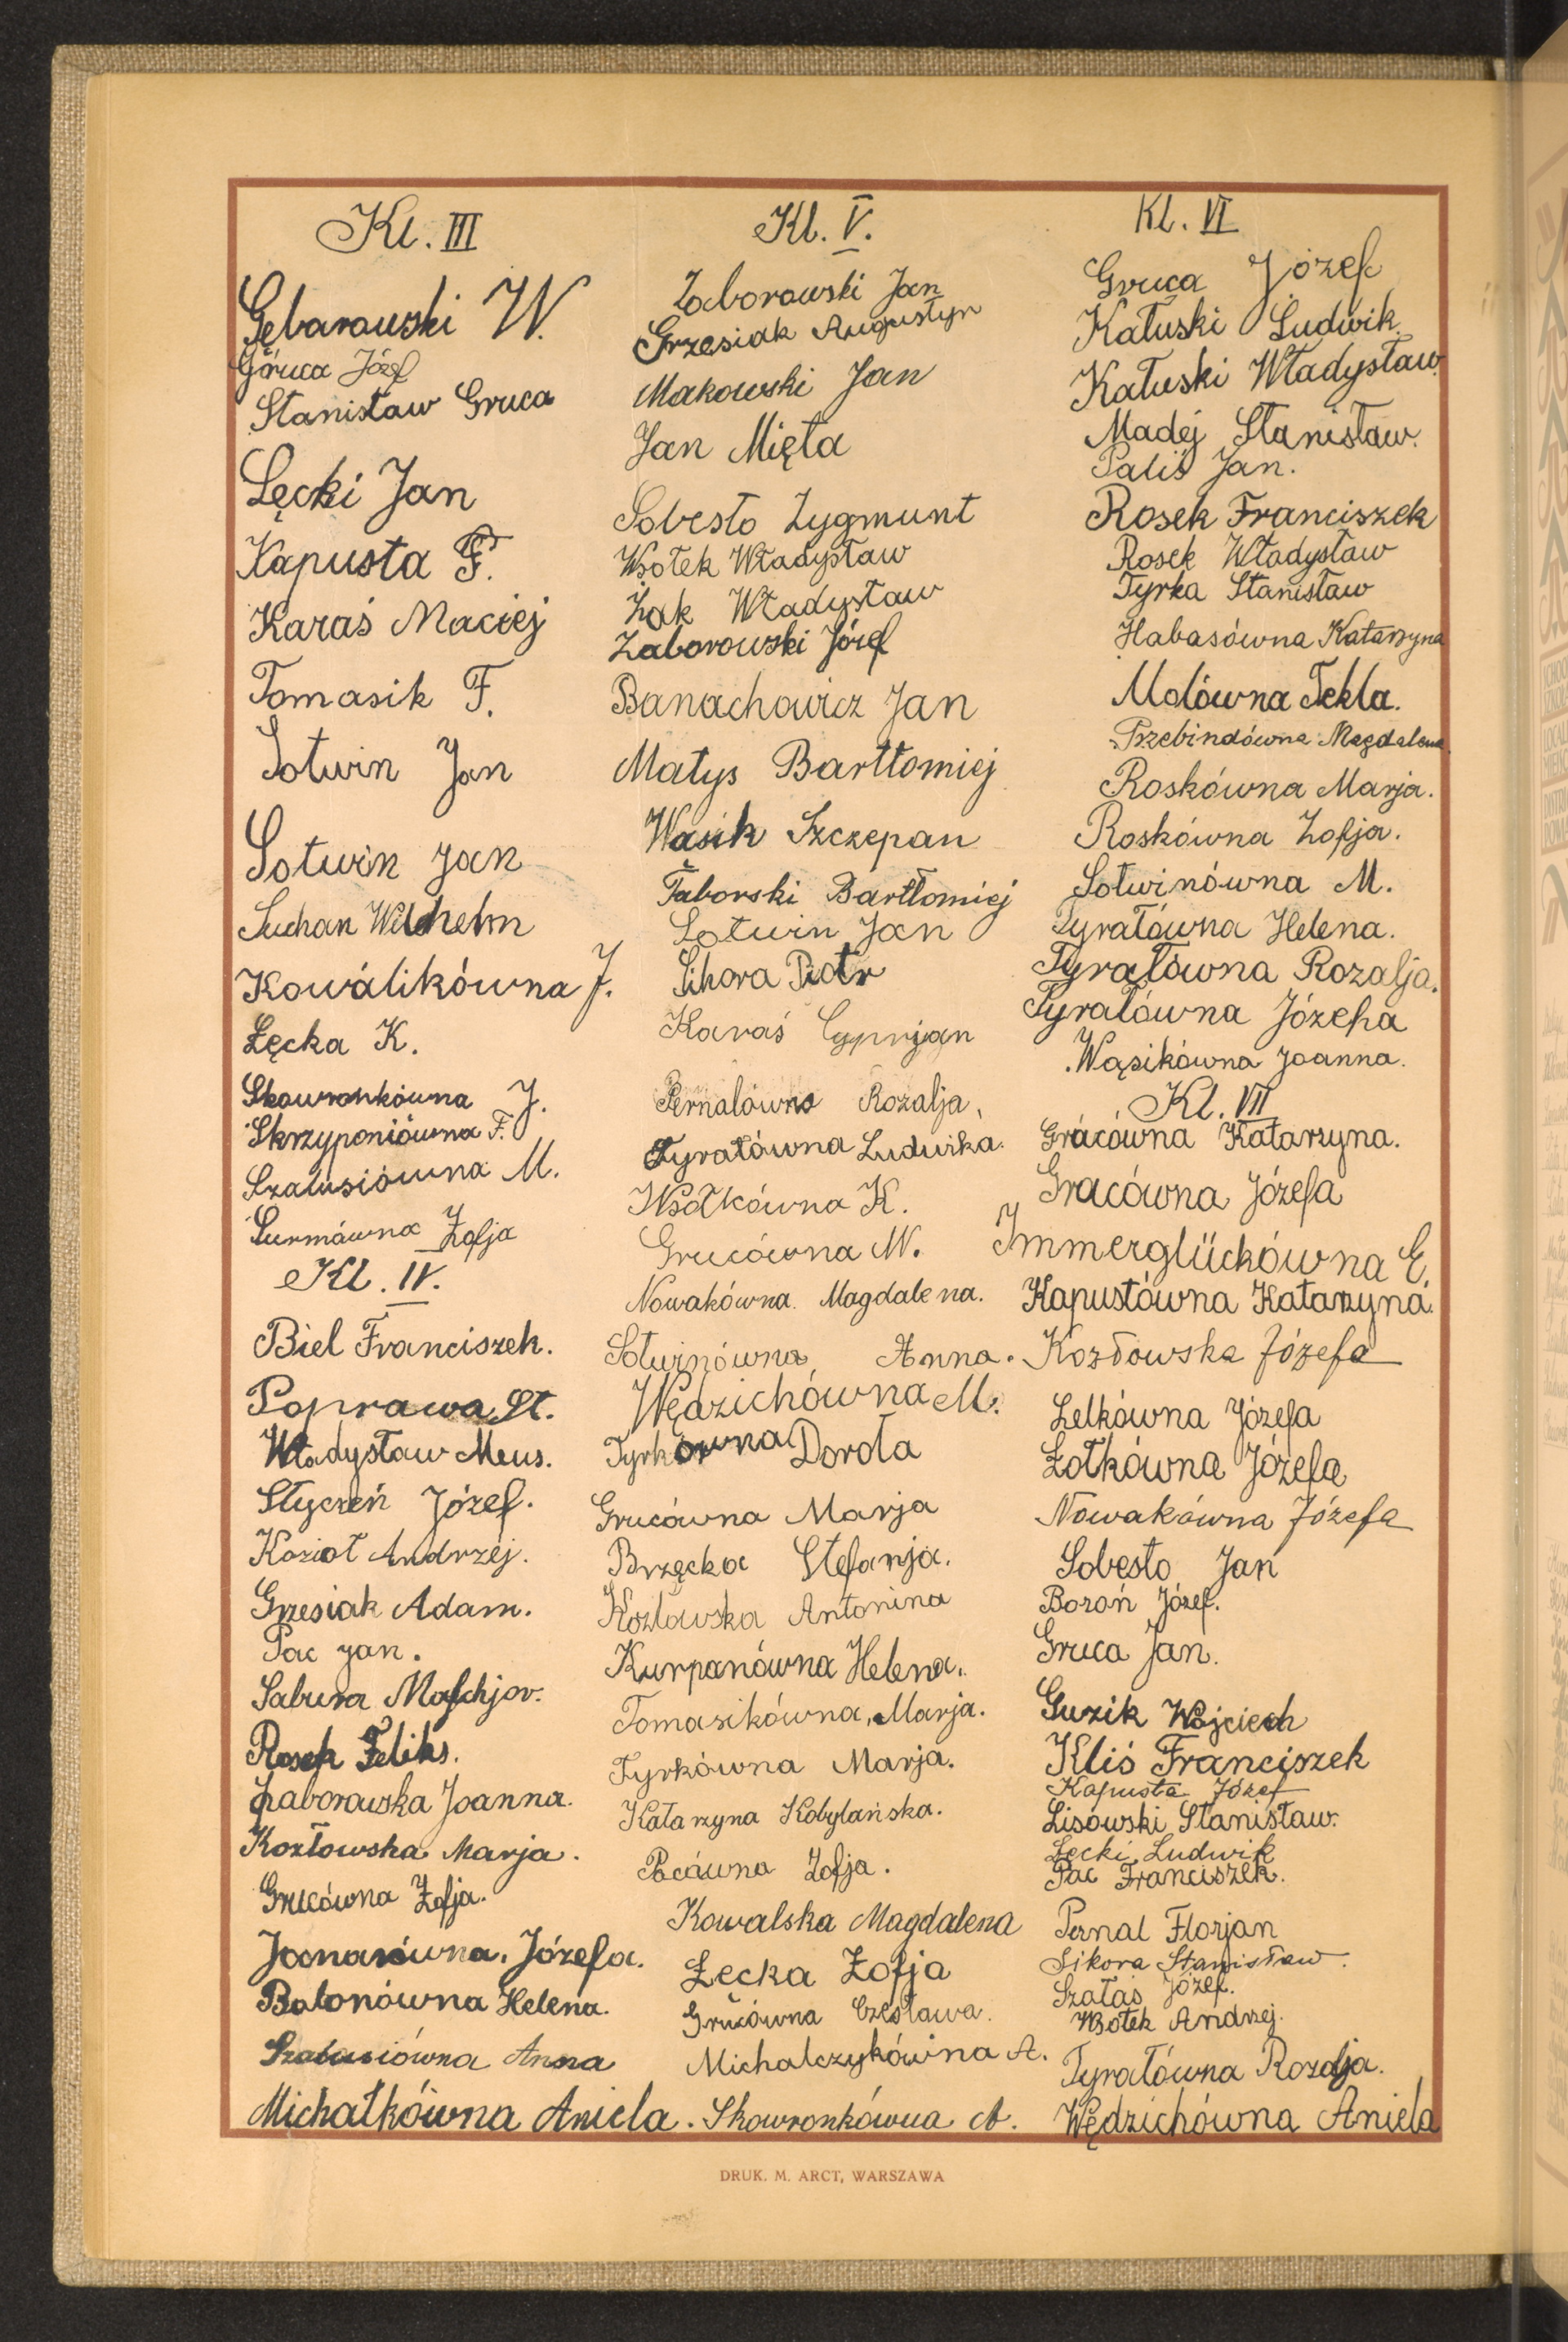 Kl. III
Gębarowski W.
Góruca Józef
Stanisław Gruca
Łęcki Jan
Kapusta F.
Karaś Maciej
Tomasik F.
Sotwin Jan
Sotwin Jan
Suchan Wilchelm
Kowálikówna J.
Łęcka K.
Skowronkówna J.
Skrzyponiówna F.
Szalusiówna M.
Surmówna Zofja
Kl. IV.
Biel Franciszek.
Poprawa St.
Władysław Meus.
Styczeń Józef.
Kozioł Andrzej.
Grzesiak Adam.
Pac Jan.
Sabura
Rosek Feliks.
Zaborowska Joanna.
Kozłowska Marja.
Grucówna Zofja.
Józefa.
Balonówna Helena.
Szalusiówna Anna
Michałkówna Aniela.
Kl. V.
Zaborowski Jan
Grzesiak Augustyn
Makowski Jan
Jan Mięta
Sobesto Zygmunt
Wsołek Władysław
Żak Władysław
Zaborowski Józef
Banachowicz Jan
Matys Barttomiej
Wasik Szczepan
Taborski Bartłomiej
Sotwin Jan
Sikora Piotr
Karaś Cyprjan
Pernalówna Rozalja,
Tyratówna Ludwika.
Wsółkówna K.
Grucówna W.
Nowakówna. Magdalena.
Sotwinówna Anna.
Wędzichówna M.
Tyrkówna Dorota
Grucówna Marja
Brzęcka Stefanja.
Kozłowska Antonina
Kurpanówna Helena.
Tomasikówna, Marja.
Tyrkówna Marja.
Katarzyna Kobylańska.
Pacówna Zofja.
Kowalska Magdalena
Łęcka Zofja
Grucówna Czesława.
Michalczykówna A.
Skowronkówna A.
Kl. VI
Gruca Józef
Kałuski Ludwik.
Kałuski Władysław.
Madej Stanisław.
Paliś Jan.
Rosek Franciszek
Rosek Władysław
Tyrka Stanisław
Habasówna Katarzyna
Molówna Tekla.
Przebindówna Magdalena.
Roskówna Marja.
Roskówna Zofja.
Sotwinówna M.
Tyrałówna Helena.
Tyrałówna Rozalja.
Tyrałówna Józefa
Wąsikówna Joanna.
Kl. VII
Gracówna Katarzyna.
Gracówna Józefa
Immerglückówna E.
Kapustówna Katarzyna.
Kozłowska Józefa
Lelkówna Józefa
Żołkówna Józefa
Nowakówna Józefa
Sobesto Jan
Boroń Józef.
Gruca Jan.
Guzik Wojciech
Kliś Franciszek
Kapusta Józef
Lisowski Stanisław.
Łęcki Ludwik
Pac Franciszek.
Pernal Florjan
Sikora Stanisław.
Szałas Józef.
Wsołek Andrzej.
Tyrałówna Rozalja.
Wędzichówna Aniela
DRUK. M. ARCT, WARSZAWA